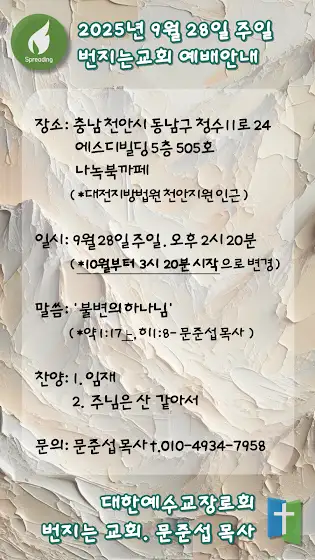 Spreading
2025년 9월 28일 주일
번지는교회 예배안내
장소: 충남 천안시 동남구 청수11로 24
에스디빌딩 5층 505호
나녹북까페
(*대전지방법원천안지원 인근)
일시: 9월28일 주일. 오후 2시 20분
(*10월부터 3시 20분 시작으로 변경)
말씀: '불변의하나님'
(*약1:17上, 히1:8- 문준섭 목사)
찬양: 1. 임재
2. 주님은 산 같아서
문의: 문준섭 목사 t.010-4934-7958
대한예수교장로회
번지는 교회. 문준섭 목사